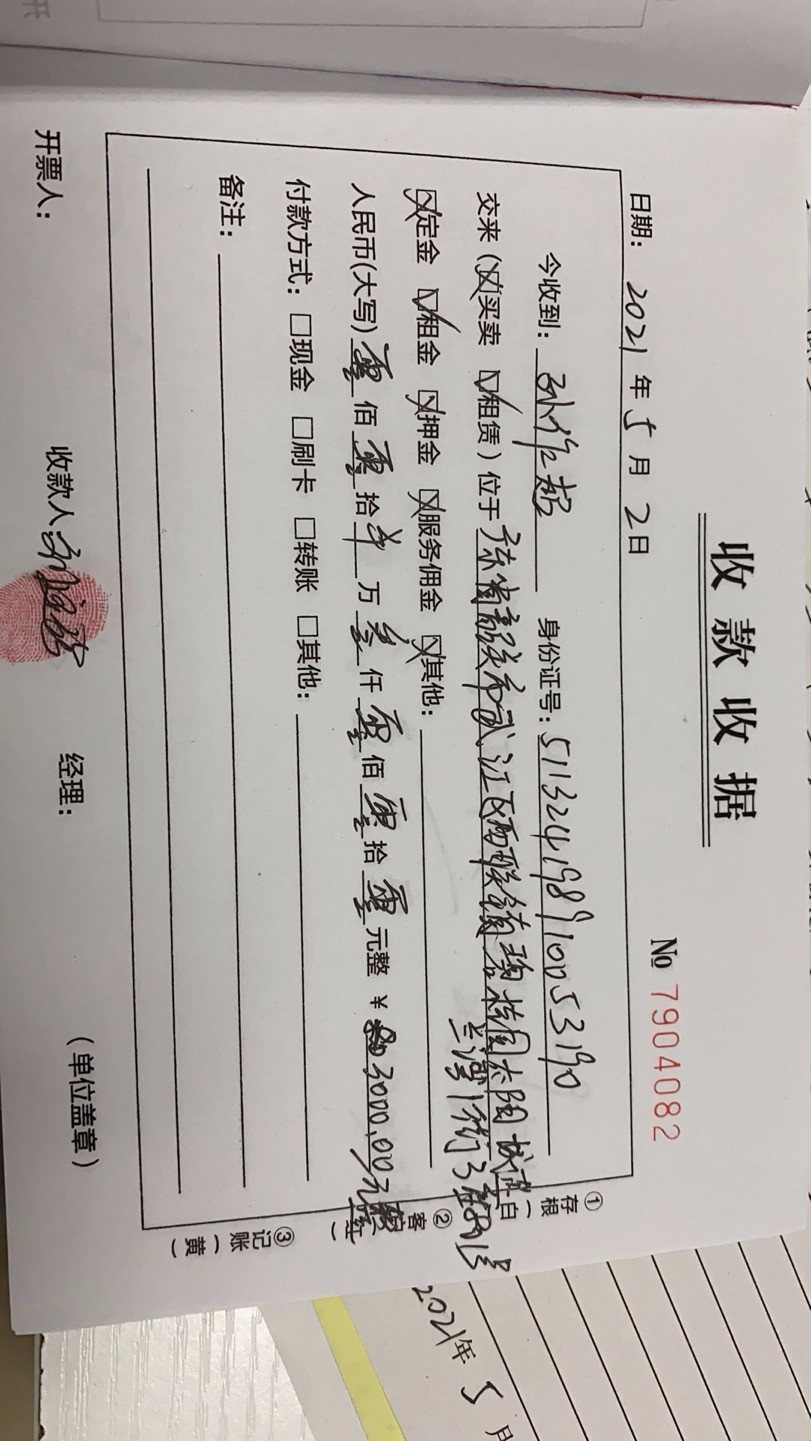 收款收据
№ 7904082
日期： 2021 年 5 月 2 日
今收到： 孙作超 身份证号： 511324198910053190
交来（☒买卖 ☑租赁）位于 广东省韶关市武江区西联镇碧桂园太阳城
兰湾1街3
☒定金 ☑租金 ☒押金 ☒服务佣金 ☒其他：
人民币(大写) 零 佰 零 拾 万 叁 仟 零 佰 零 拾 零 元整 ¥ 3000.00元
付款方式： □现金 □刷卡 □转账 □其他：
备注：
开票人： 收款人： 经理： （单位盖章）
①存根（白）
②客（红）
③记账（黄）
2021年 5 月